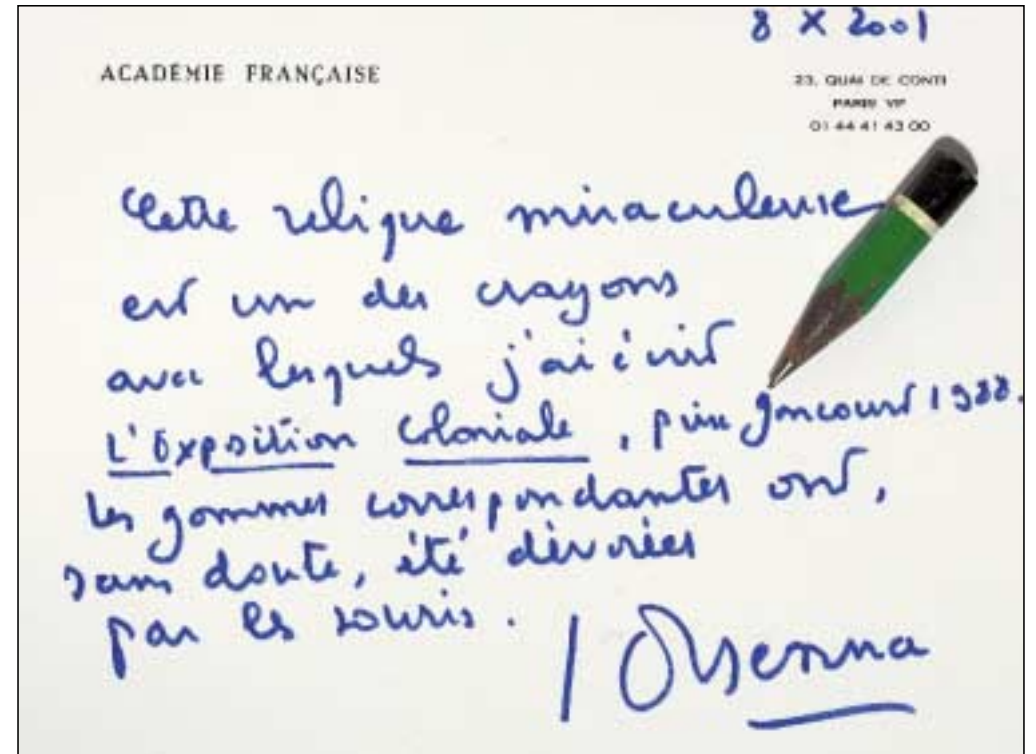 8 X 2001
ACADÉMIE FRANÇAISE
23, QUAI DE CONTI
PARIS VIᵉ
01 44 41 43 00
Cette relique miraculeuse
est un des crayons
avec lesquels j'ai écrit
L'Exposition Coloniale, prix Goncourt 1988.
Les gommes correspondantes ont,
sans doute, été dévorées
par les souris.
Orsenna